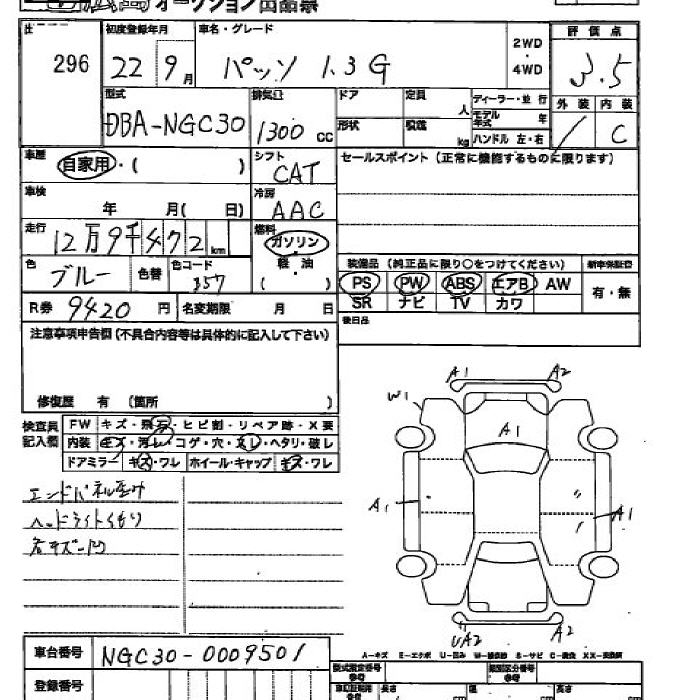 オークション出品票
296
初度登録年月
車名・グレード
22 9月
パッソ 1.3G
2WD
・
4WD
評価点
3.5
外装 内装
/ C
型式
DBA-NGC30
排気量
1300 cc
ドア
定員 人
形状
kg
ディーラー・並行
モデル年式 年
ハンドル 左・右
車歴
自家用・( )
シフト
CAT
セールスポイント (正常に機能するものに限ります)
車検
年 月( 日)
冷房
AAC
走行
12万9千472km
燃料
ガソリン
軽・油
( )
色
ブルー
色替
色コード
B57
装備品 (純正品に限り○をつけてください)
新車保証書
PS PW ABS エアB AW
SR ナビ TV カワ
有・無
R券 9420円
名変期限 月 日
後日品
注意事項申告欄(不具合内容等は具体的に記入して下さい)
修復歴 有 (箇所 )
検査員記入欄
FW キズ・飛石・ヒビ割・リペア跡・X要
内装 キズ・汚レ・コゲ・穴・スレ・ヘタリ・破レ
ドアミラー キズ・ワレ ホイール・キャップ キズ・ワレ
エンドパネル歪み
ヘッドライトくもり
右キズ凹
A1 A2
W1
A1
A1 A1
UA2 A2
車台番号 NGC30-0009501
登録番号
A－キズ E－エクボ U－凹み W－補修跡 S－サビ C－腐蝕 XX－交換済
型式指定番号
類別区分番号
長さ 幅 高さ